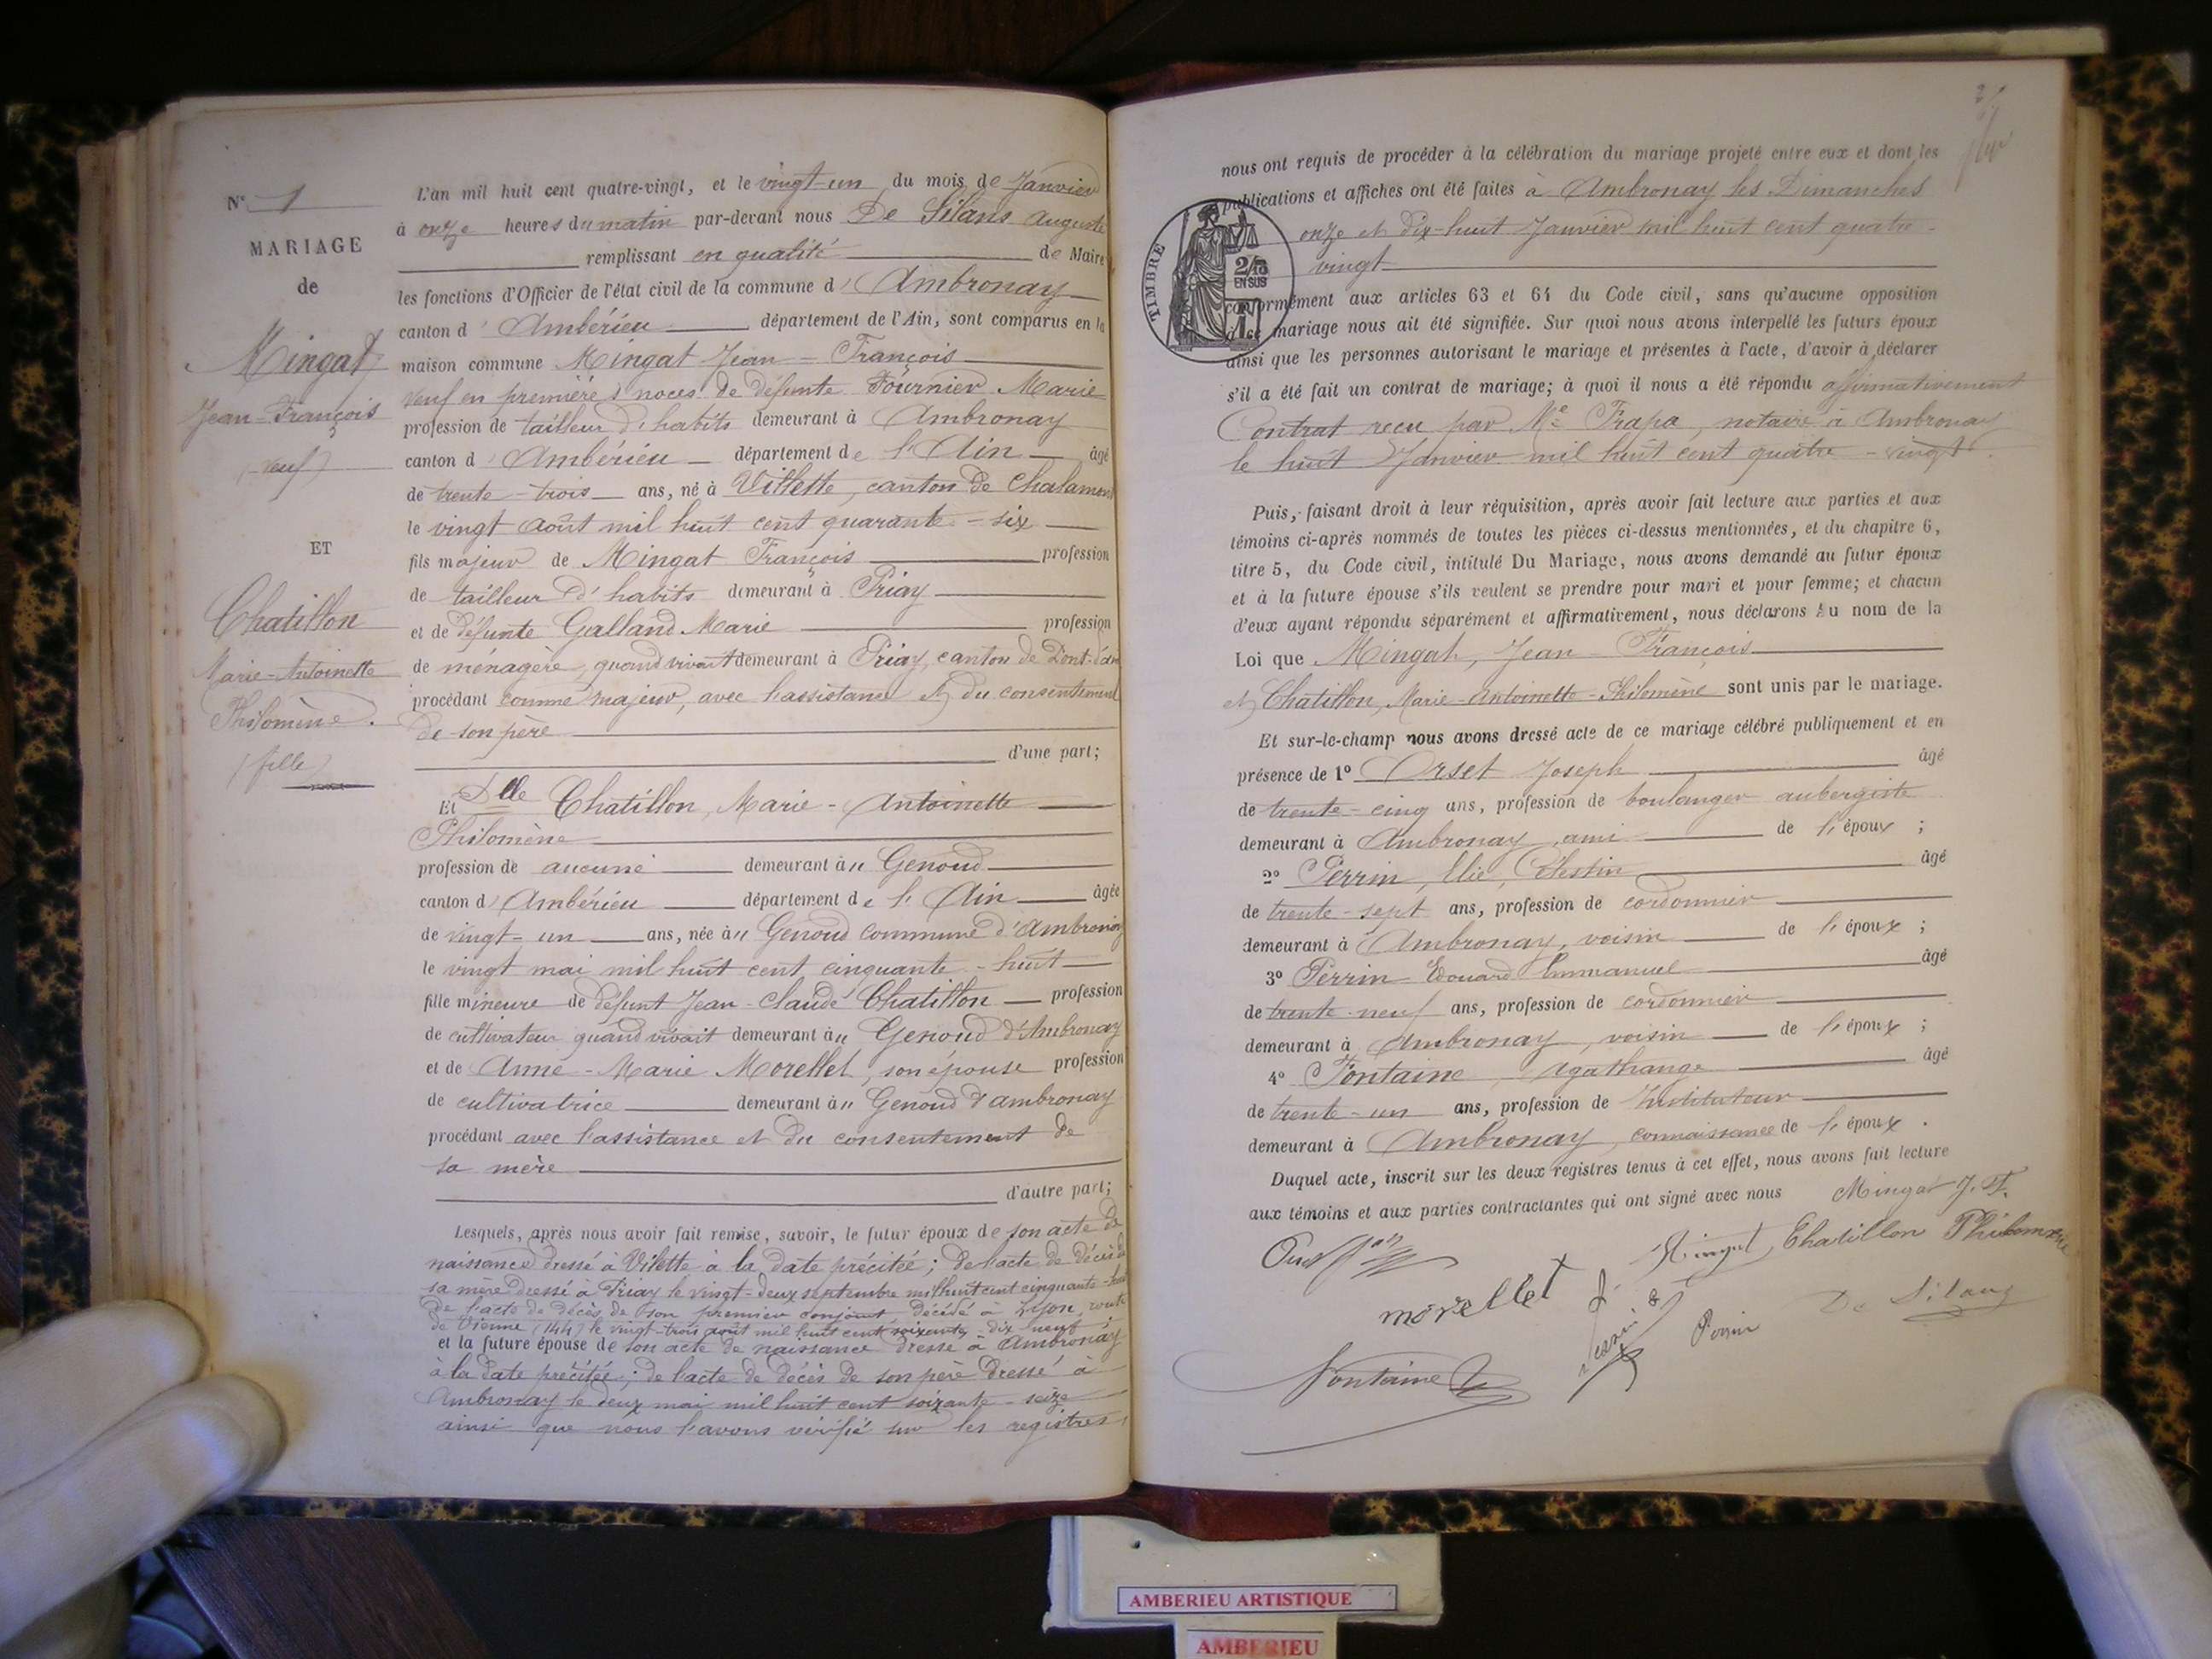 N° 1
MARIAGE
de
Mingat
Jean-François
(veuf)
ET
Chatillon
Marie-Antoinette
Philomène.
(fille)
L'an mil huit cent quatre-vingt, et le vingt-un du mois de Janvier
à onze heures du matin par-devant nous De Silans Auguste
remplissant en qualité de Maire
les fonctions d'Officier de l'état civil de la commune d'Ambronay
canton d'Ambérieu département de l'Ain, sont comparus en la
maison commune Mingat Jean-François
veuf en premières noces de défunte Fournier Marie
profession de tailleur d'habits demeurant à Ambronay
canton d'Ambérieu département de l'Ain âgé
de trente-trois ans, né à Villette, canton de Chalamont
le vingt août mil huit cent quarante-six
fils majeur de Mingat François profession
de tailleur d'habits demeurant à Priay
et de défunte Galland Marie profession
de ménagère, quand vivait demeurant à Priay, canton de Pont-d'Ain
procédant comme majeur, avec l'assistance et du consentement
de son père
d'une part;
Et Dlle Chatillon, Marie-Antoinette
Philomène
profession de aucune demeurant à Genoud
canton d'Ambérieu département de l'Ain âgée
de vingt-un ans, née à Genoud commune d'Ambronay
le vingt mai mil huit cent cinquante-huit
fille mineure de défunt Jean-Claude Chatillon profession
de cultivateur quand vivait demeurant à Genoud d'Ambronay
et de Anne-Marie Morellet, son épouse profession
de cultivatrice demeurant à Genoud d'ambronay
procédant avec l'assistance et du consentement de
sa mère
d'autre part;
Lesquels, après nous avoir fait remise, savoir, le futur époux de son acte de
naissance dressé à Villette à la date précitée; de l'acte de décès de
sa mère dressé à Priay le vingt-deux septembre mil huit cent cinquante-huit
de l'acte de décès de son premier conjoint décédé à Lyon, route
de Vienne (144) le vingt-trois août mil huit cent soixante-dix neuf
et la future épouse de son acte de naissance dressé à Ambronay
à la date précitée; de l'acte de décès de son père dressé à
Ambronay le deux mai mil huit cent soixante-seize
ainsi que nous l'avons vérifié sur les registres
nous ont requis de procéder à la célébration du mariage projeté entre eux et dont les
publications et affiches ont été faites à Ambronay les Dimanches
onze et dix-huit Janvier mil huit cent quatre-
vingt
TIMBRE
2/10
EN SUS
conformément aux articles 63 et 64 du Code civil, sans qu'aucune opposition
mariage nous ait été signifiée. Sur quoi nous avons interpellé les futurs époux
ainsi que les personnes autorisant le mariage et présentes à l'acte, d'avoir à déclarer
s'il a été fait un contrat de mariage; à quoi il nous a été répondu affirmativement
Contrat reçu par Me Trapa, notaire à Ambronay
le huit Janvier mil huit cent quatre-vingt.
Puis, faisant droit à leur réquisition, après avoir fait lecture aux parties et aux
témoins ci-après nommés de toutes les pièces ci-dessus mentionnées, et du chapitre 6,
titre 5, du Code civil, intitulé Du Mariage, nous avons demandé au futur époux
et à la future épouse s'ils veulent se prendre pour mari et pour femme; et chacun
d'eux ayant répondu séparément et affirmativement, nous déclarons au nom de la
Loi que Mingat, Jean-François
et Chatillon, Marie-Antoinette-Philomène sont unis par le mariage.
Et sur-le-champ nous avons dressé acte de ce mariage célébré publiquement et en
présence de 1° Orset Joseph âgé
de trente-cinq ans, profession de boulanger aubergiste
demeurant à Ambronay, ami de l'époux;
2° Perrin, Elie, Célestin âgé
de trente-sept ans, profession de cordonnier
demeurant à Ambronay, voisin de l'époux;
3° Perrin Edouard Emmanuel âgé
de trente-neuf ans, profession de cordonnier
demeurant à Ambronay, voisin de l'époux;
4° Fontaine, Agathange âgé
de trente-un ans, profession de Instituteur
demeurant à Ambronay, connaissance de l'époux.
Duquel acte, inscrit sur les deux registres tenus à cet effet, nous avons fait lecture
aux témoins et aux parties contractantes qui ont signé avec nous Mingat J. F.
Mingat Chatillon Philomène
morellet
Perrin De Silans
Fontaine
AMBERIEU ARTISTIQUE
AMBERIEU